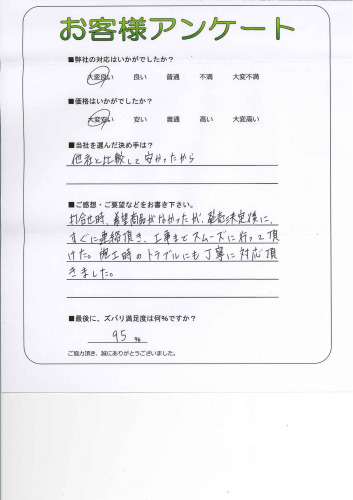 お客様アンケート
■弊社の対応はいかがでしたか？
大変良い 良い 普通 不満 大変不満
■価格はいかがでしたか？
大変安い 安い 普通 高い 大変高い
■当社を選んだ決め手は？
他社と比較して安かったから
■ご感想・ご要望などをお書き下さい。
打合せ時、希望商品がなかったが、整数決定後に、
すぐに連絡頂き、工事までスムーズに行って頂
けた。施工時のトラブルにも丁寧に対応頂
きました。
■最後に、ズバリ満足度は何％ですか？
95 %
ご協力頂き、誠にありがとうございました。